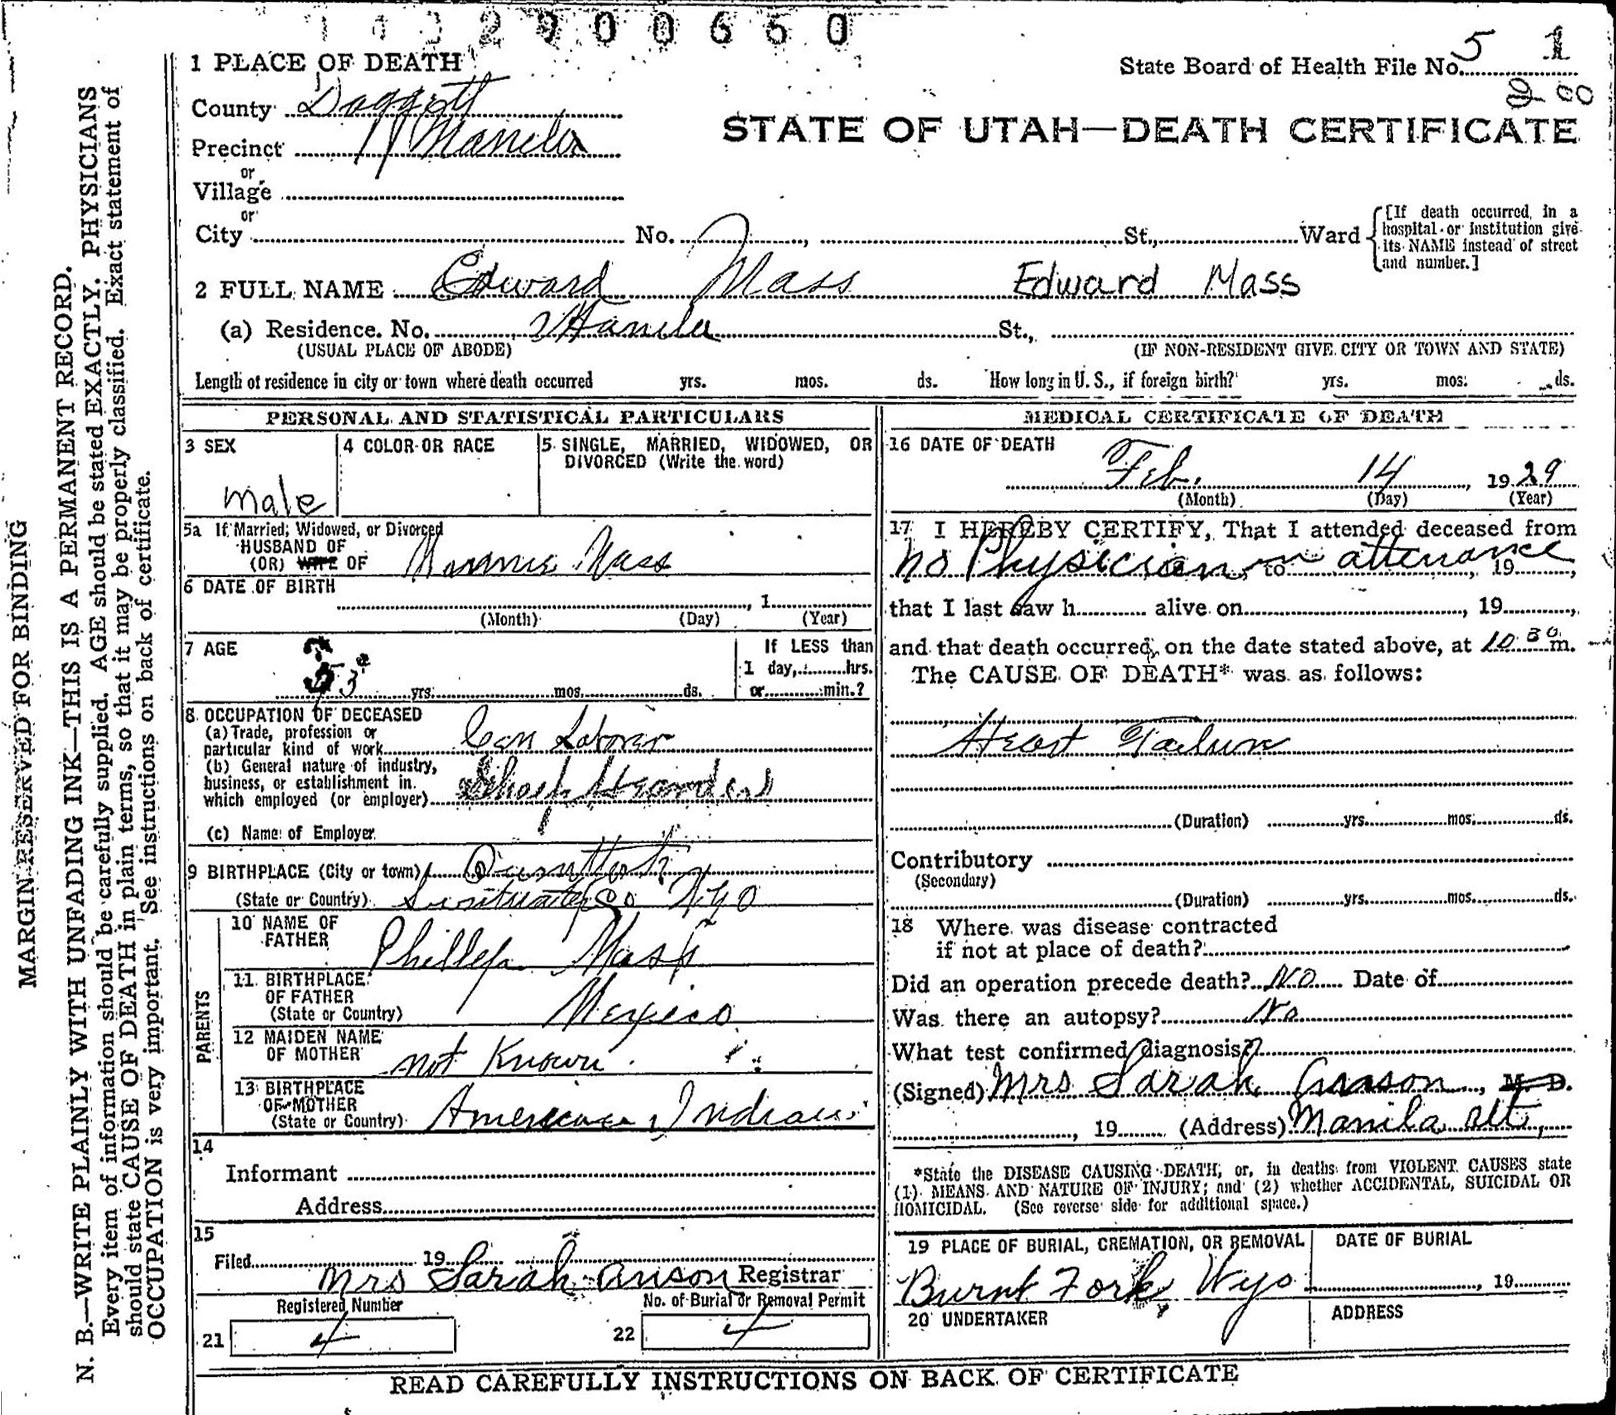 2900650
1 PLACE OF DEATH
State Board of Health File No. 5 1
200
County Daggett
STATE OF UTAH—DEATH CERTIFICATE
Precinct Manila
or
Village
or
City No. , St., Ward
[If death occurred in a hospital or institution give its NAME instead of street and number.]
2 FULL NAME Edward Mass Edward Mass
(a) Residence. No. Manila St.,
(USUAL PLACE OF ABODE) (IF NON-RESIDENT GIVE CITY OR TOWN AND STATE)
Length of residence in city or town where death occurred yrs. mos. ds. How long in U. S., if foreign birth? yrs. mos. ds.
PERSONAL AND STATISTICAL PARTICULARS
3 SEX 4 COLOR OR RACE 5 SINGLE, MARRIED, WIDOWED, OR
DIVORCED (Write the word)
male
5a If Married, Widowed, or Divorced
HUSBAND OF
(OR) WIFE OF Mass
6 DATE OF BIRTH
, 1
(Month) (Day) (Year)
7 AGE If LESS than
1 day, hrs.
53 yrs. mos. ds. or min.?
8 OCCUPATION OF DECEASED
(a) Trade, profession or
particular kind of work
(b) General nature of industry,
business, or establishment in
which employed (or employer)
(c) Name of Employer
9 BIRTHPLACE (City or town)
(State or Country) Co Wyo
PARENTS
10 NAME OF
FATHER Phillip Mass
11 BIRTHPLACE
OF FATHER
(State or Country) Mexico
12 MAIDEN NAME
OF MOTHER not Known
13 BIRTHPLACE
OF MOTHER
(State or Country) American Indian
14
Informant
Address
15
Filed 19
Mrs Sarah Anson Registrar
Registered Number No. of Burial or Removal Permit
21 4 22 4
MEDICAL CERTIFICATE OF DEATH
16 DATE OF DEATH
Feb. 14, 1929
(Month) (Day) (Year)
17 I HEREBY CERTIFY, That I attended deceased from
no Physician in attenance to , 19 ,
that I last saw h alive on , 19 ,
and that death occurred, on the date stated above, at 10 30 m.
The CAUSE OF DEATH* was as follows:
Heart Failure
(Duration) yrs. mos. ds.
Contributory
(Secondary)
(Duration) yrs. mos. ds.
18 Where was disease contracted
if not at place of death?
Did an operation precede death? No Date of
Was there an autopsy? No
What test confirmed diagnosis?
(Signed) Mrs Sarah Anson, M. D.
, 19 (Address) Manila Ut,
*State the DISEASE CAUSING DEATH, or, in deaths from VIOLENT CAUSES state
(1) MEANS AND NATURE OF INJURY; and (2) whether ACCIDENTAL, SUICIDAL OR
HOMICIDAL. (See reverse side for additional space.)
19 PLACE OF BURIAL, CREMATION, OR REMOVAL DATE OF BURIAL
Burnt Fork, Wyo , 19
20 UNDERTAKER ADDRESS
READ CAREFULLY INSTRUCTIONS ON BACK OF CERTIFICATE
MARGIN RESERVED FOR BINDING
N. B.—WRITE PLAINLY WITH UNFADING INK—THIS IS A PERMANENT RECORD.
Every item of information should be carefully supplied. AGE should be stated EXACTLY. PHYSICIANS
should state CAUSE OF DEATH in plain terms, so that it may be properly classified. Exact statement of
OCCUPATION is very important. See instructions on back of certificate.